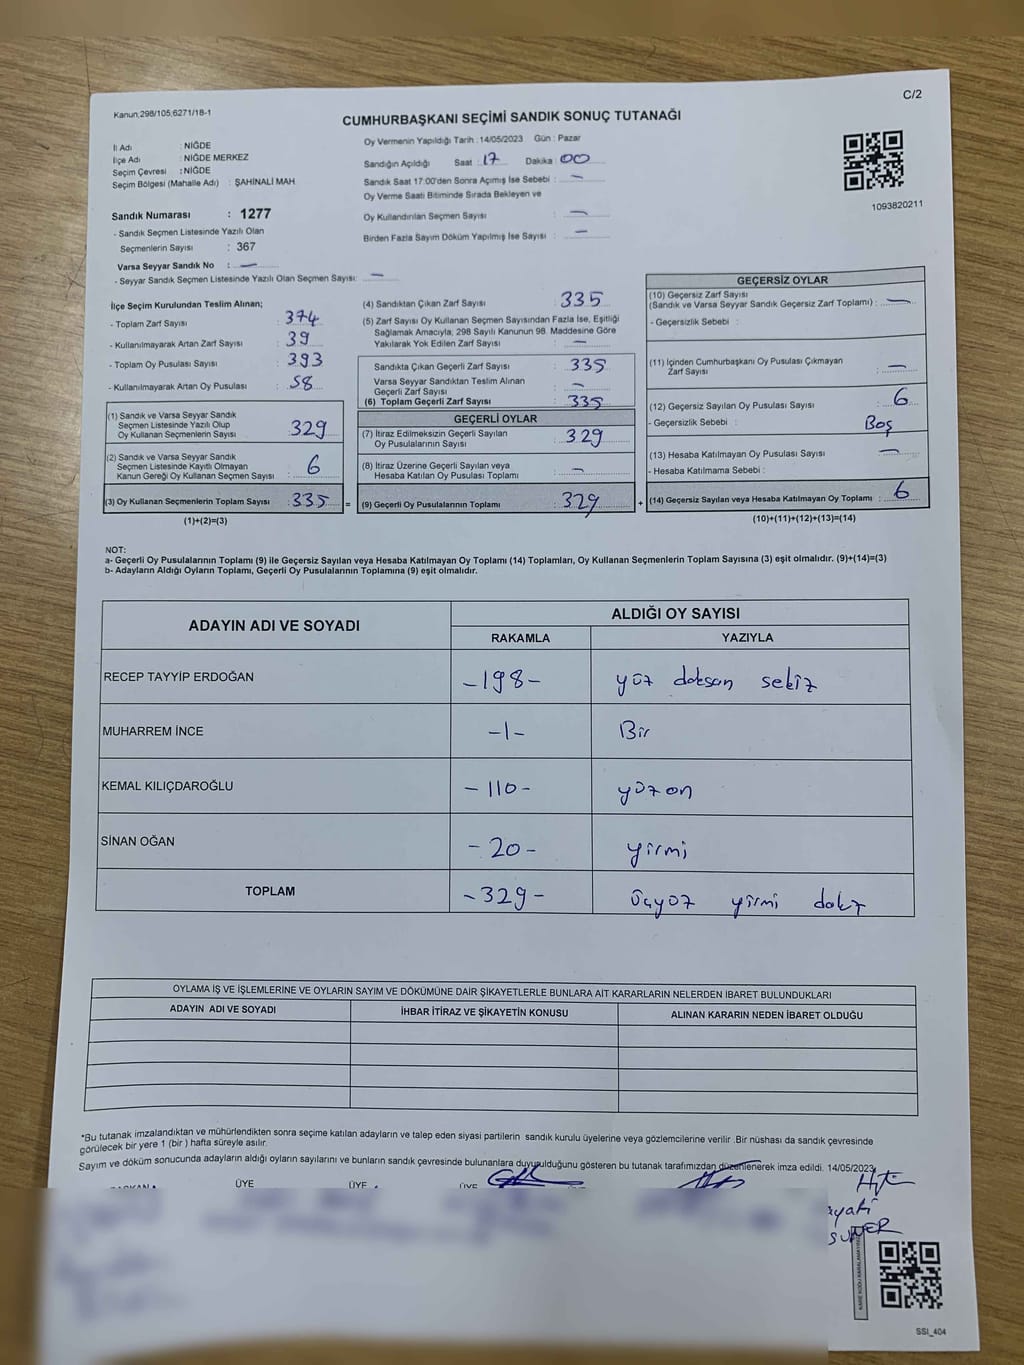 C/2
Kanun;298/105;6271/18-1
CUMHURBAŞKANI SEÇİMİ SANDIK SONUÇ TUTANAĞI
İl Adı : NİĞDE
İlçe Adı : NİĞDE MERKEZ
Seçim Çevresi : NİĞDE
Seçim Bölgesi (Mahalle Adı) : ŞAHİNALİ MAH.
Sandık Numarası : 1277
- Sandık Seçmen Listesinde Yazılı Olan
Seçmenlerin Sayısı : 367
Varsa Seyyar Sandık No : —
- Seyyar Sandık Seçmen Listesinde Yazılı Olan Seçmen Sayısı: —
Oy Vermenin Yapıldığı Tarih : 14/05/2023 Gün : Pazar
Sandığın Açıldığı Saat : 17 Dakika : 00
Sandık Saat 17:00'den Sonra Açımış İse Sebebi : —
Oy Verme Saati Bitiminde Sırada Bekleyen ve
Oy Kullandırılan Seçmen Sayısı : —
Birden Fazla Sayım Döküm Yapılmış İse Sayısı : —
1093820211
İlçe Seçim Kurulundan Teslim Alınan;
- Toplam Zarf Sayısı : 374
- Kullanılmayarak Artan Zarf Sayısı : 39
- Toplam Oy Pusulası Sayısı : 393
- Kullanılmayarak Artan Oy Pusulası : 58
(1) Sandık ve Varsa Seyyar Sandık
Seçmen Listesinde Yazılı Olup
Oy Kullanan Seçmenlerin Sayısı : 329
(2) Sandık ve Varsa Seyyar Sandık
Seçmen Listesinde Kayıtlı Olmayan
Kanun Gereği Oy Kullanan Seçmen Sayısı : 6
(3) Oy Kullanan Seçmenlerin Toplam Sayısı : 335 =
(1)+(2)=(3)
(4) Sandıktan Çıkan Zarf Sayısı : 335
(5) Zarf Sayısı Oy Kullanan Seçmen Sayısından Fazla İse, Eşitliği
Sağlamak Amacıyla, 298 Sayılı Kanunun 98. Maddesine Göre
Yakılarak Yok Edilen Zarf Sayısı : —
Sandıkta Çıkan Geçerli Zarf Sayısı : 335
Varsa Seyyar Sandıktan Teslim Alınan
Geçerli Zarf Sayısı : —
(6) Toplam Geçerli Zarf Sayısı : 335
GEÇERLİ OYLAR
(7) İtiraz Edilmeksizin Geçerli Sayılan
Oy Pusulalarının Sayısı : 329
(8) İtiraz Üzerine Geçerli Sayılan veya
Hesaba Katılan Oy Pusulası Toplamı : —
(9) Geçerli Oy Pusulalarının Toplamı : 329 +
GEÇERSİZ OYLAR
(10) Geçersiz Zarf Sayısı
(Sandık ve Varsa Seyyar Sandık Geçersiz Zarf Toplamı) : —
- Geçersizlik Sebebi :
(11) İçinden Cumhurbaşkanı Oy Pusulası Çıkmayan
Zarf Sayısı : —
(12) Geçersiz Sayılan Oy Pusulası Sayısı : 6
- Geçersizlik Sebebi : Boş
(13) Hesaba Katılmayan Oy Pusulası Sayısı : —
- Hesaba Katılmama Sebebi :
(14) Geçersiz Sayılan veya Hesaba Katılmayan Oy Toplamı : 6
(10)+(11)+(12)+(13)=(14)
NOT:
a- Geçerli Oy Pusulalarının Toplamı (9) ile Geçersiz Sayılan veya Hesaba Katılmayan Oy Toplamı (14) Toplamları, Oy Kullanan Seçmenlerin Toplam Sayısına (3) eşit olmalıdır. (9)+(14)=(3)
b- Adayların Aldığı Oyların Toplamı, Geçerli Oy Pusulalarının Toplamına (9) eşit olmalıdır.
ADAYIN ADI VE SOYADI ALDIĞI OY SAYISI
RAKAMLA YAZIYLA
RECEP TAYYİP ERDOĞAN -198- yüz doksan sekiz
MUHARREM İNCE -1- Bir
KEMAL KILIÇDAROĞLU -110- yüz on
SİNAN OĞAN -20- yirmi
TOPLAM -329- üçyüz yirmi dokz
OYLAMA İŞ VE İŞLEMLERİNE VE OYLARIN SAYIM VE DÖKÜMÜNE DAİR ŞİKAYETLERLE BUNLARA AİT KARARLARIN NELERDEN İBARET BULUNDUKLARI
ADAYIN ADI VE SOYADI İHBAR İTİRAZ VE ŞİKAYETİN KONUSU ALINAN KARARIN NEDEN İBARET OLDUĞU
*Bu tutanak imzalandıktan ve mühürlendikten sonra seçime katılan adayların ve talep eden siyasi partilerin sandık kurulu üyelerine veya gözlemcilerine verilir .Bir nüshası da sandık çevresinde
görülecek bir yere 1 (bir ) hafta süreyle asılır.
Sayım ve döküm sonucunda adayların aldığı oyların sayılarını ve bunların sandık çevresinde bulunanlara duyurulduğunu gösteren bu tutanak tarafımızdan düzenlenerek imza edildi. 14/05/2023
BAŞKAN ÜYE ÜYE ÜYE
SSI_404